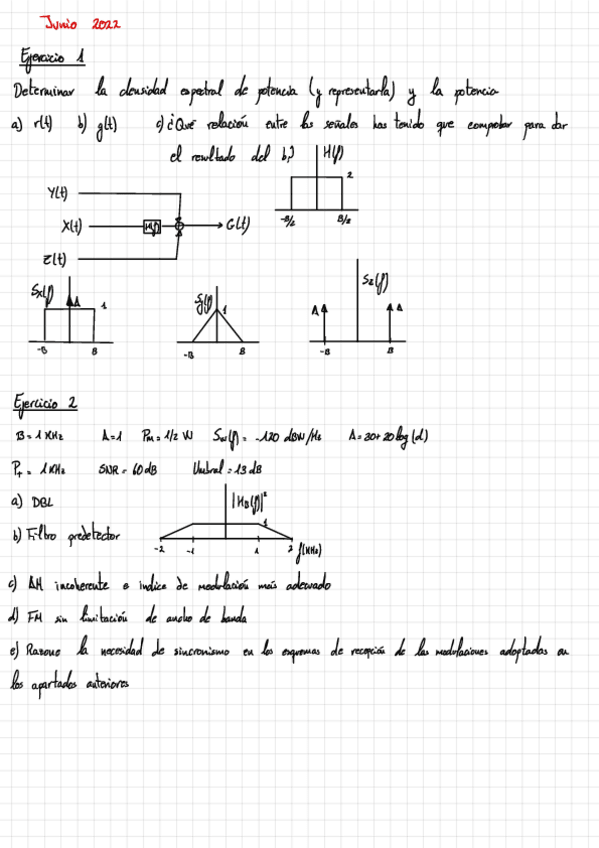 Junio 2022
Ejercicio 1
Determinar la densidad espectral de potencia (y representarla) y la potencia
a) r(t) b) g(t) c) ¿Qué relación entre las señales has tenido que comprobar para dar
el resultado del b)?
H(f)
2
-B/2 B/2
Y(t)
X(t) H(f) G(t)
Z(t)
Sx(f) A 1
-B B
1
-B B
Sz(f)
A A
-B B
Ejercicio 2
B = 1 KHz A=1 Pm = 1/2 W = -120 dBW/Hz A = 20+20log(d)
= 1 KHz SNR = 60 dB Umbral = 13 dB
a) DBL
b) Filtro predetector
|HD(f)|²
1
-2 -1 1 2 f(KHz)
c) AM incoherente e indice de modulación más adecuado
d) FM sin limitación de ancho de banda
e) Razone la necesidad de sincronismo en los esquemas de recepción de las modulaciones adoptadas en
los apartados anteriores